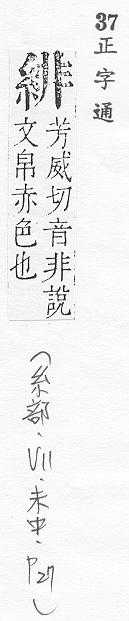 37 正字通
緋
芳威切音非說
文帛赤色也
(糸部·VII·未中·P27)